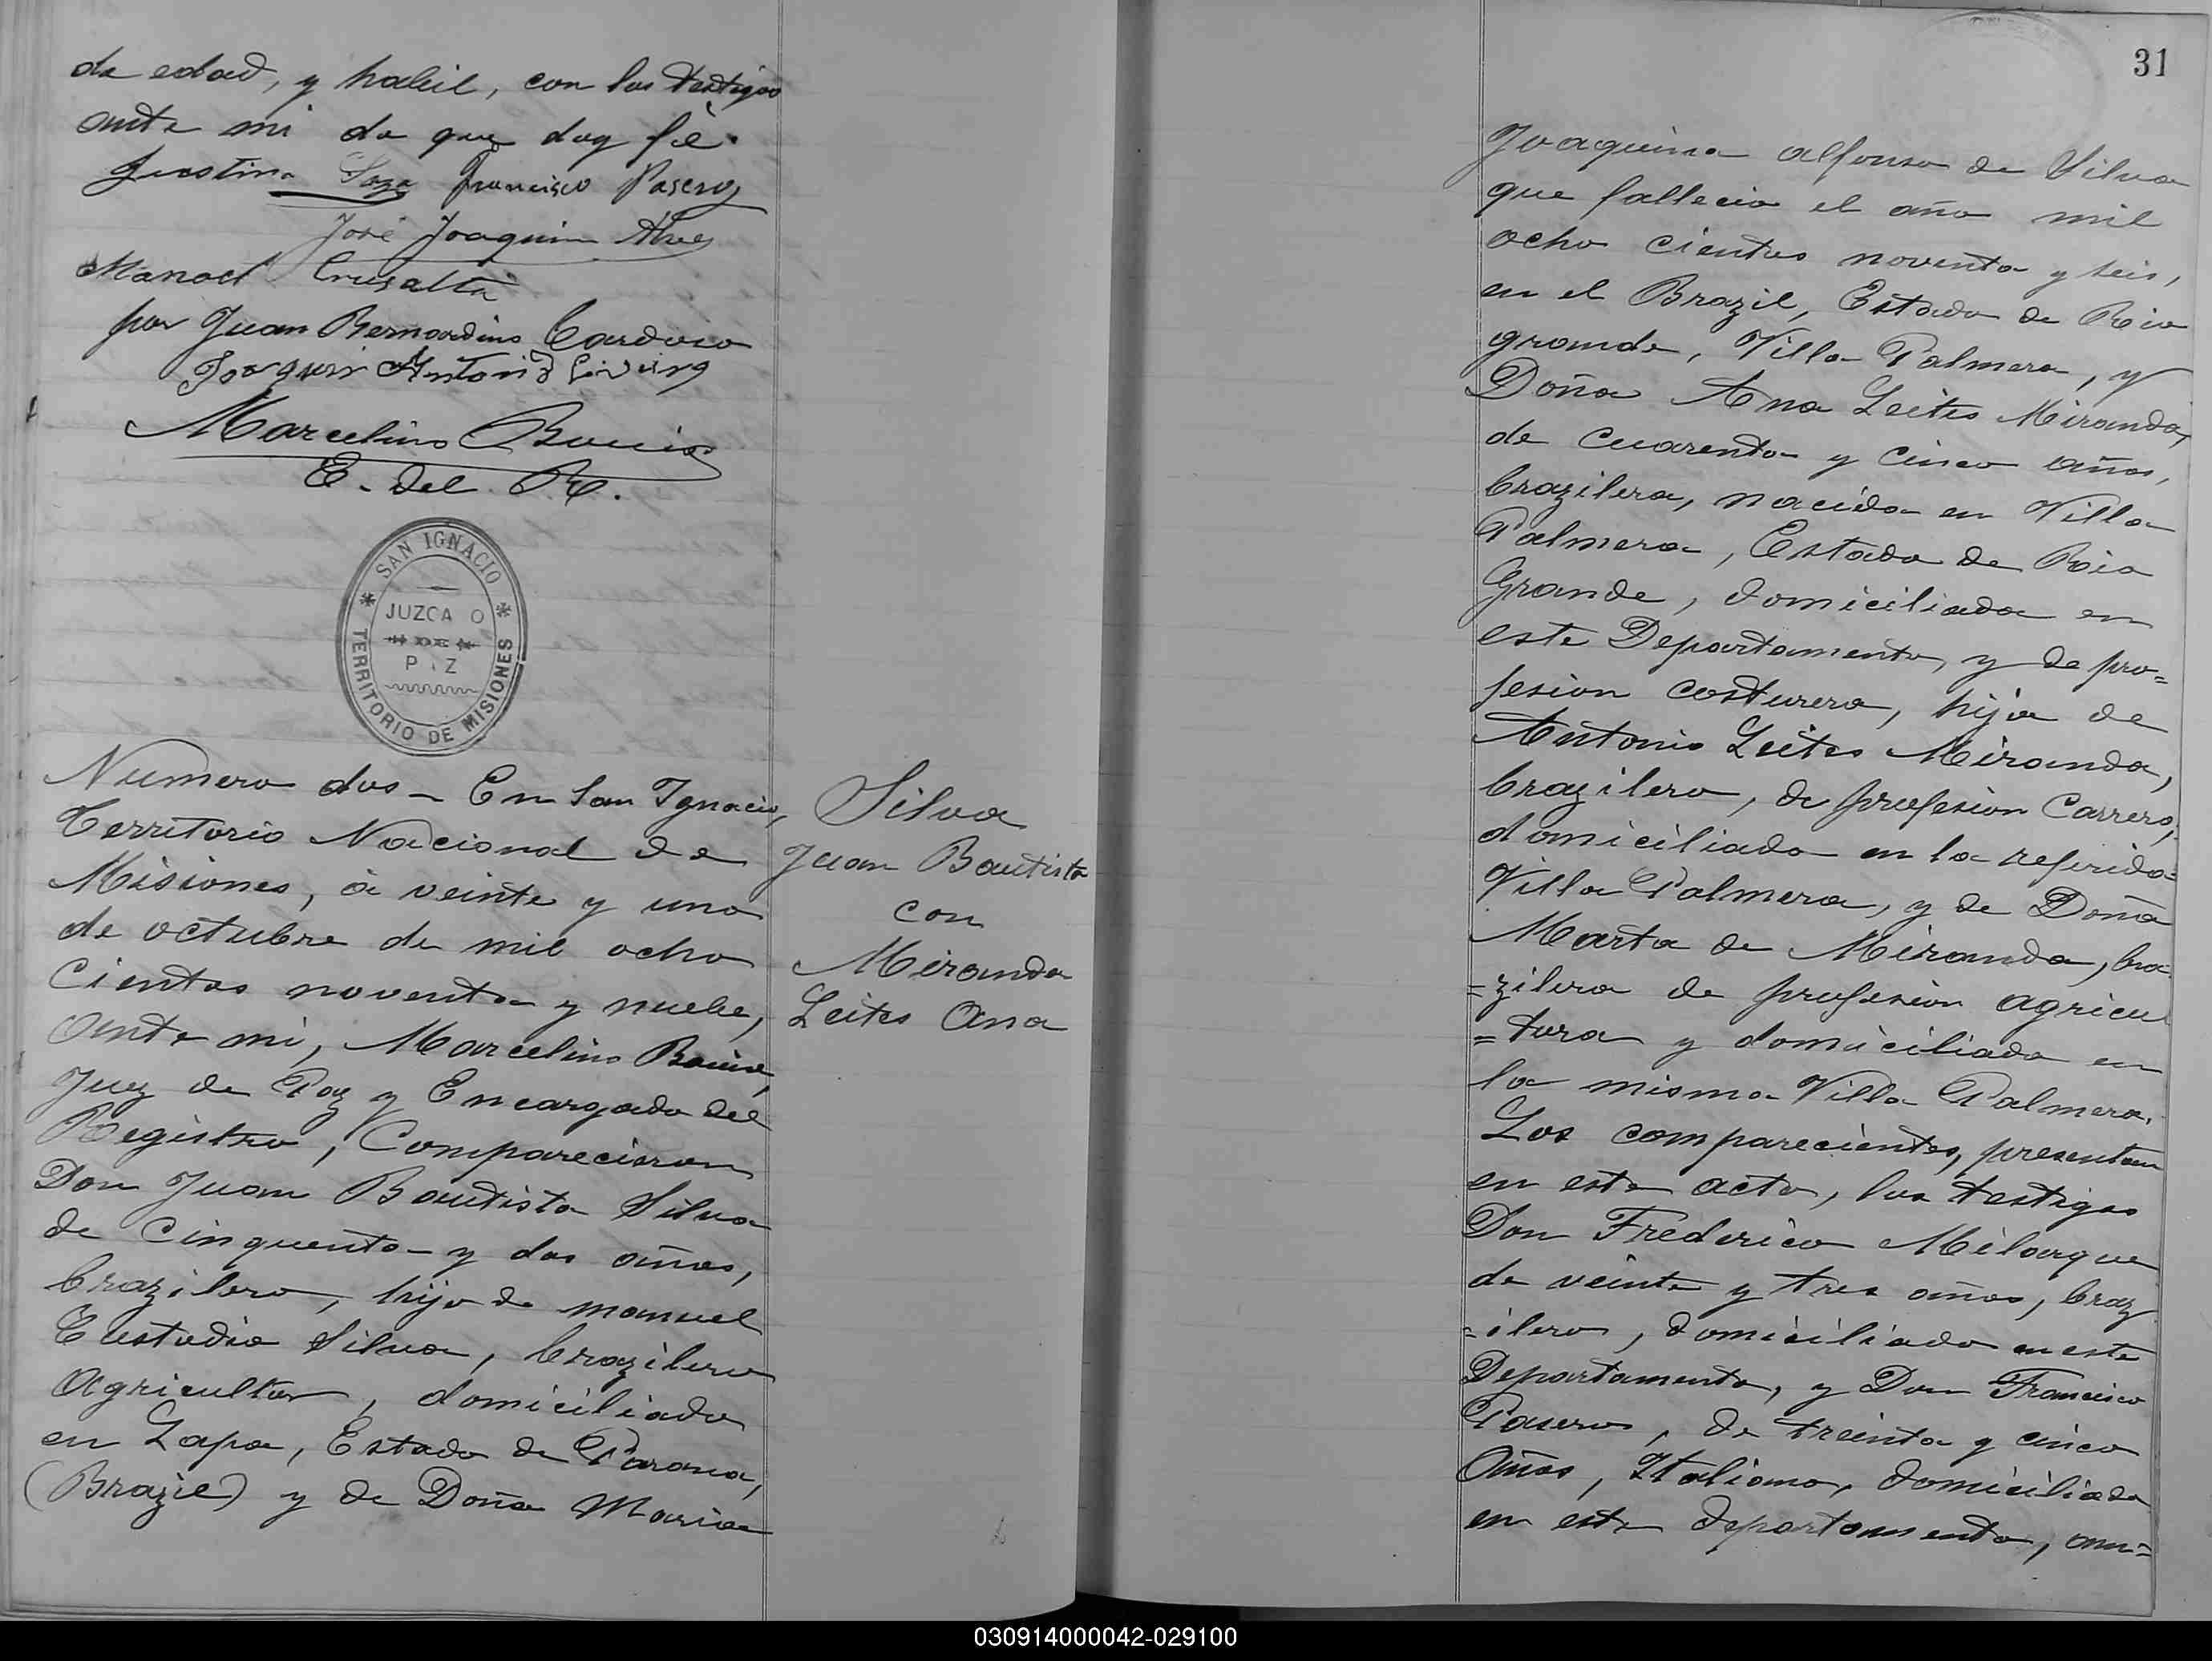 de edad, y habil, con los testigos
ante mi de que doy fé.
Justina Soza Francisco Pasero
José Joaquin Alves
Manoel Crusalta
por Juan Bernardino Cardoso
Joaquin Antonio
Marcelino Bouix
E. del R.
SAN IGNACIO
JUZGADO
DE
PAZ
TERRITORIO DE MISIONES
Numero dos - En San Ignacio,
Territorio Nacional de
Misiones, á veinte y uno
de octubre de mil ocho
cientos noventa y nuebe,
ante mi, Marcelino Bouix,
Juez de Paz y Encargado del
Registro, Comparecieron
Don Juan Bautista Silva
de Cinquenta y dos años,
brazilero, hijo de manuel
Eustadio Silva, brazilero
Agricultor, domiciliado
en Lapa, Estado de Parana,
(Brazil) y de Doña Maria
Silva
Juan Bautista
con
Miranda
Leites Ana
31
Joaquina alfonso de Silva
que fallecio el año mil
ocho cientos noventa y seis,
en el Brazil, Estado de Rio
grande, Villa Palmera, y
Doña Ana Leites Miranda,
de cuarenta y cinco años,
brazilera, nacida en Villa
Palmera, Estado de Rio
Grande, domiciliada en
este Departamento, y de pro=
fesion costurera, hija de
Antonio Leites Miranda,
brazilero, de profesion Carrero,
domiciliado en la referida
Villa Palmera, y de Doña
Marta de Miranda, bra
=zilera de profesion agricul
=tora y domiciliada en
la misma Villa Palmera.
Los comparecientes, presentan
en este acto, los testigos
Don Frederico Milarque
de veinte y tres años, braz
=ilero, domiciliado en este
Departamento, y Don Francisco
Pasero, de treinta y cinco
Años, Italiano, domiciliado
en este departamento, am=
030914000042-029100